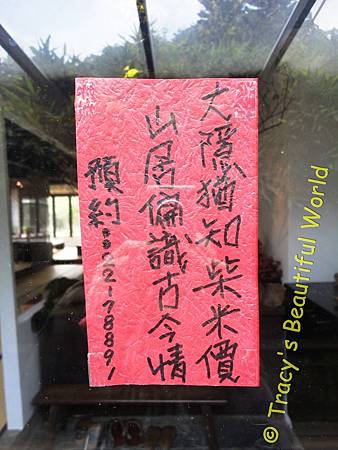 大隱猶知柴米價
山居偏識古今情
預約:22178891
© Tracy's Beautiful World